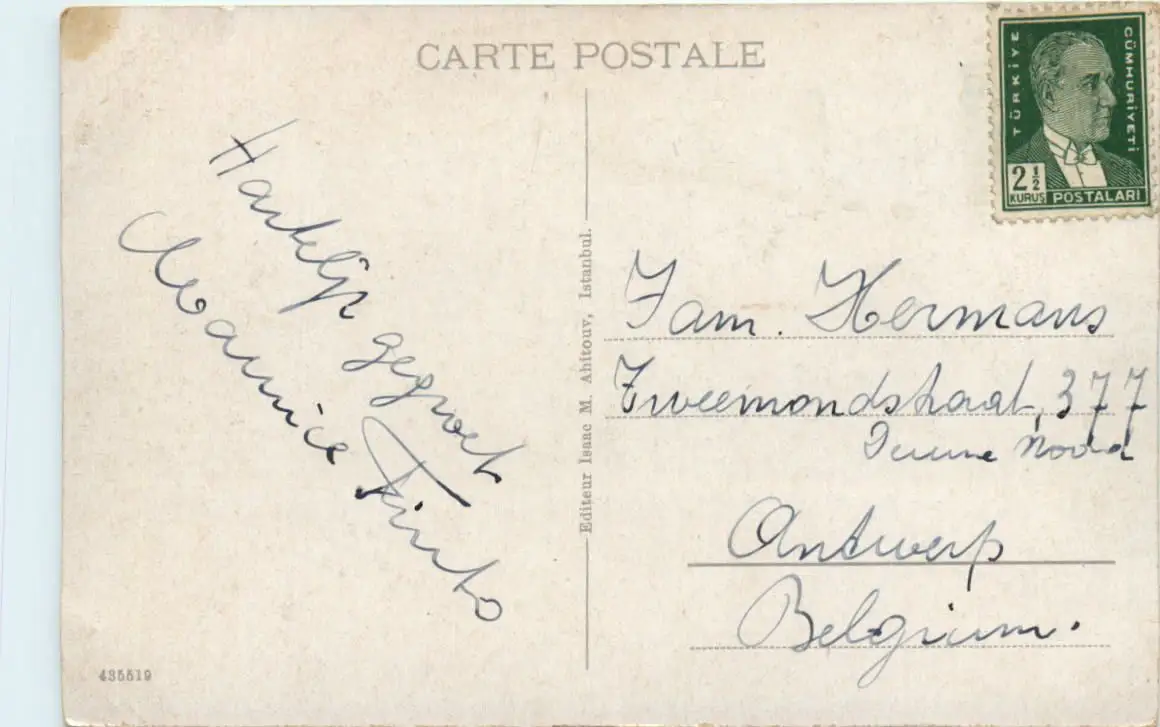 CARTE POSTALE
TÜRKİYE
CÜMHURİYETİ
2½
KURUŞ
POSTALARI
Hartlijk gegroet
Maurice
Editeur Isaac M. Ahitouv, Istanbul.
Fam. Hermans
377
Antwerp
Belgium.
435519